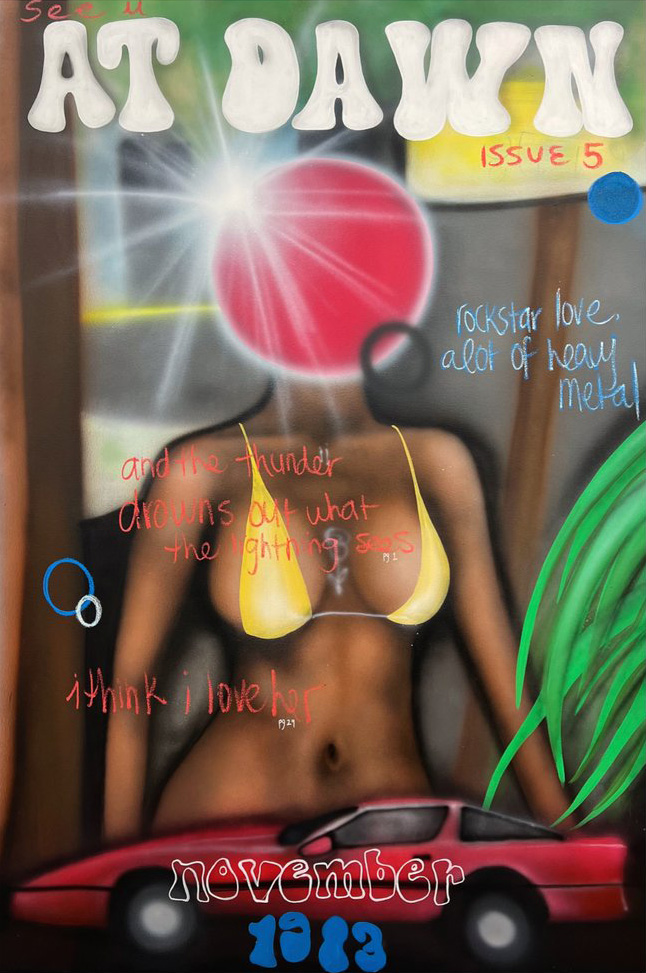 see u
AT DAWN
ISSUE 5
rockstar love,
alot of heavy
metal
and the thunder
drowns out what
the lightning sees
pg 1
i think i love her
pg 29
november
1983